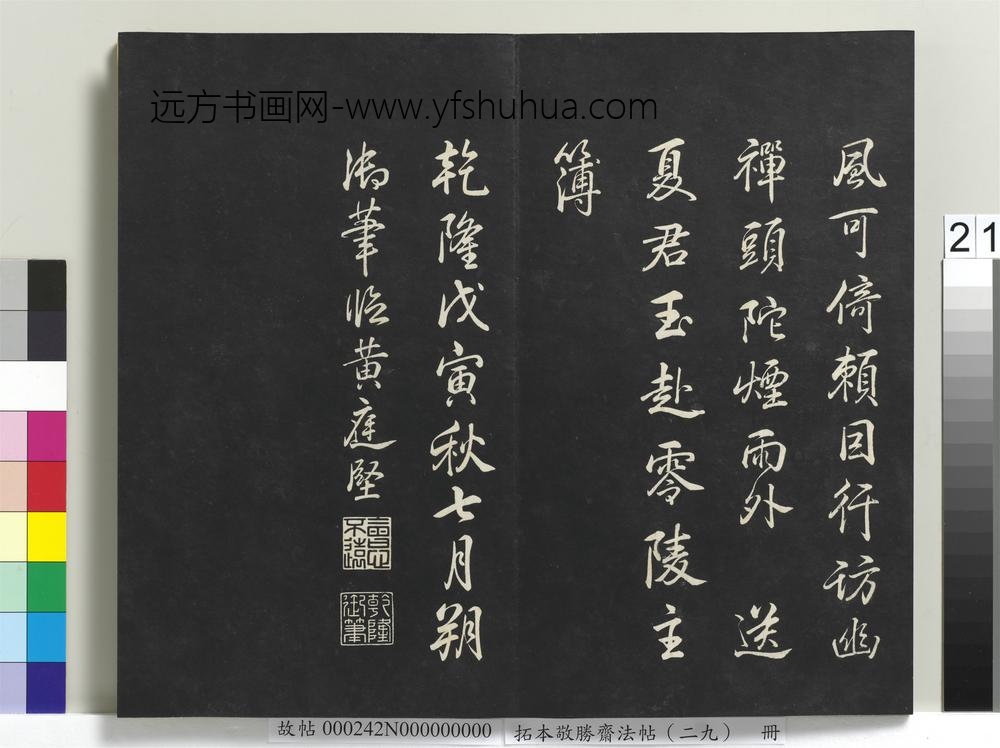 远方书画网-www.yfshuhua.com
風可倚頼因行訪幽
禪頭陀煙雨外 送
夏君玉赴零陵主
簿
乾隆戊寅秋七月朔
御筆臨黃庭堅
乾隆御筆
21
故帖 000242N000000000 拓本敬勝齋法帖（二九） 冊